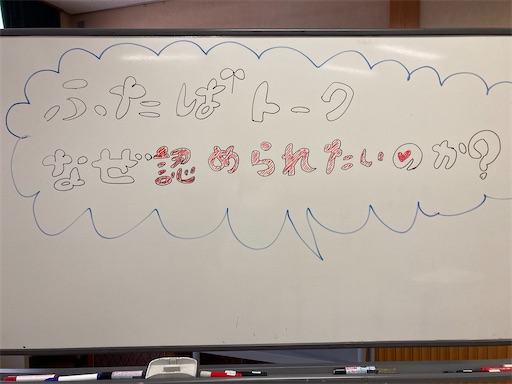 ふたばトーク
なぜ認められたいのか?